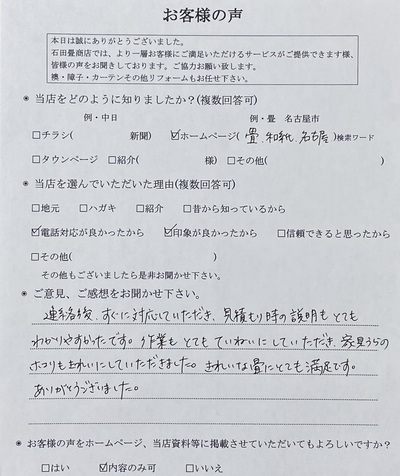 お客様の声
本日は誠にありがとうございました。
石田畳商店では、より一層お客様にご満足いただけるサービスがご提供できます様、
皆様の声をお聞きしております。ご協力お願い致します。
襖・障子・カーテンその他リフォームもお任せ下さい。
※ 当店をどのように知りましたか?(複数回答可)
例・中日 例・畳 名古屋市
□チラシ( 新聞) ☑ホームページ( 畳、和紙、名古屋 )検索ワード
□タウンページ □紹介( 様) □その他( )
※ 当店を選んでいただいた理由(複数回答可)
□地元 □ハガキ □紹介 □昔から知っているから
☑電話対応が良かったから ☑印象が良かったから □信頼できると思ったから
□その他( )
その他もございましたら是非お聞かせ下さい。
※ ご意見、ご感想をお聞かせ下さい。
連絡後、すぐに対応していただき、見積もり時の説明もとても
わかりやすかったです。作業もとてもていねいにしていただき、家具うらの
ホコリもきれいにしていただきました。きれいな畳にとても満足です。
ありがとうございました。
※ お客様の声をホームページ、当店資料等に掲載させていただいてもよろしいですか?
□はい ☑内容のみ可 □いいえ